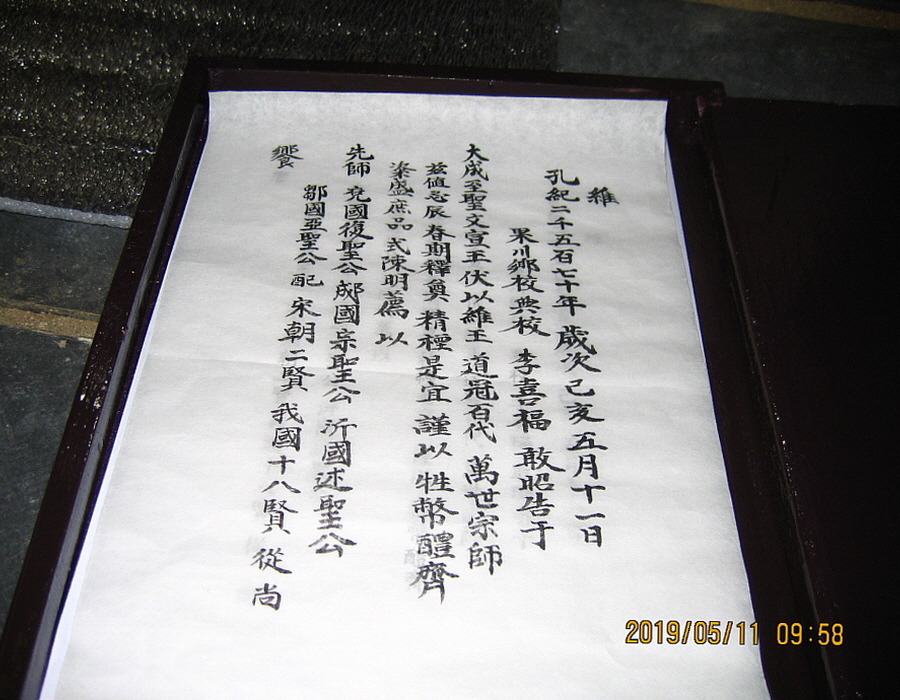 維
孔紀二千五百七十年 歲次己亥五月十一日
果川鄉校典校 李喜福 敢昭告于
大成至聖文宣王 伏以維王 道冠百代 萬世宗師
茲值忌辰 春期釋奠 精禋是宜 謹以 牲幣醴齊
粢盛庶品 式陳明薦 以
先師 兗國復聖公 郕國宗聖公 沂國述聖公
鄒國亞聖公 配 宋朝二賢 我國十八賢 從 尚
饗
2019/05/11 09:58